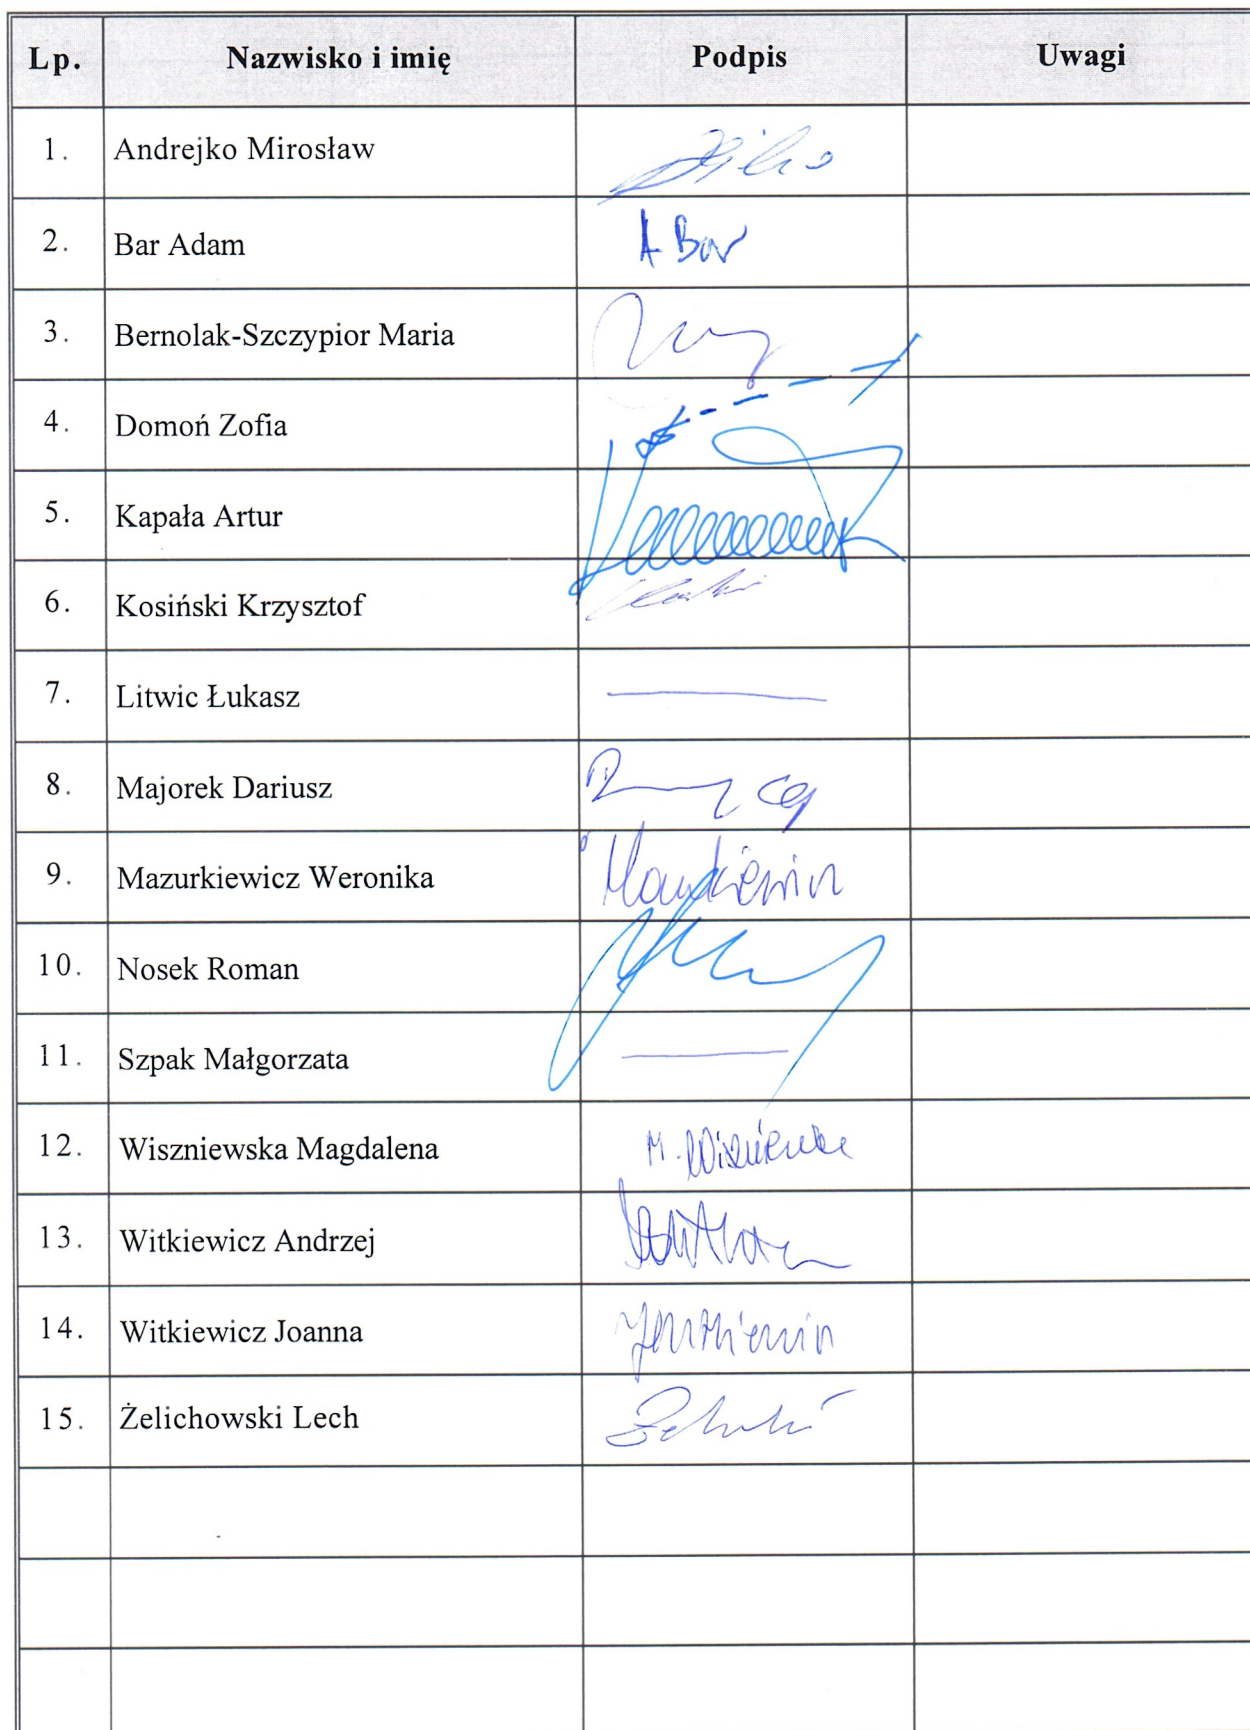 Lp. Nazwisko i imię Podpis Uwagi
1. Andrejko Mirosław
2. Bar Adam A Bar
3. Bernolak-Szczypior Maria
4. Domoń Zofia
5. Kapała Artur
6. Kosiński Krzysztof
7. Litwic Łukasz
8. Majorek Dariusz
9. Mazurkiewicz Weronika
10. Nosek Roman
11. Szpak Małgorzata
12. Wiszniewska Magdalena
13. Witkiewicz Andrzej
14. Witkiewicz Joanna
15. Żelichowski Lech